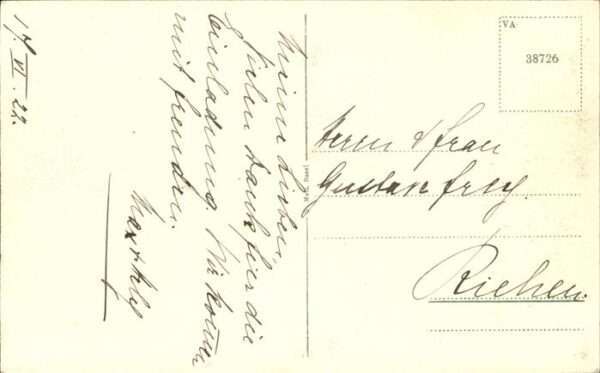 17. VI. 22.
Meine Lieben,
Vielen Dank für die
Einladung. Wir kommen
mit Freuden.
VA
38726
Herrn & Frau
Gustav Frey.
Riehen.